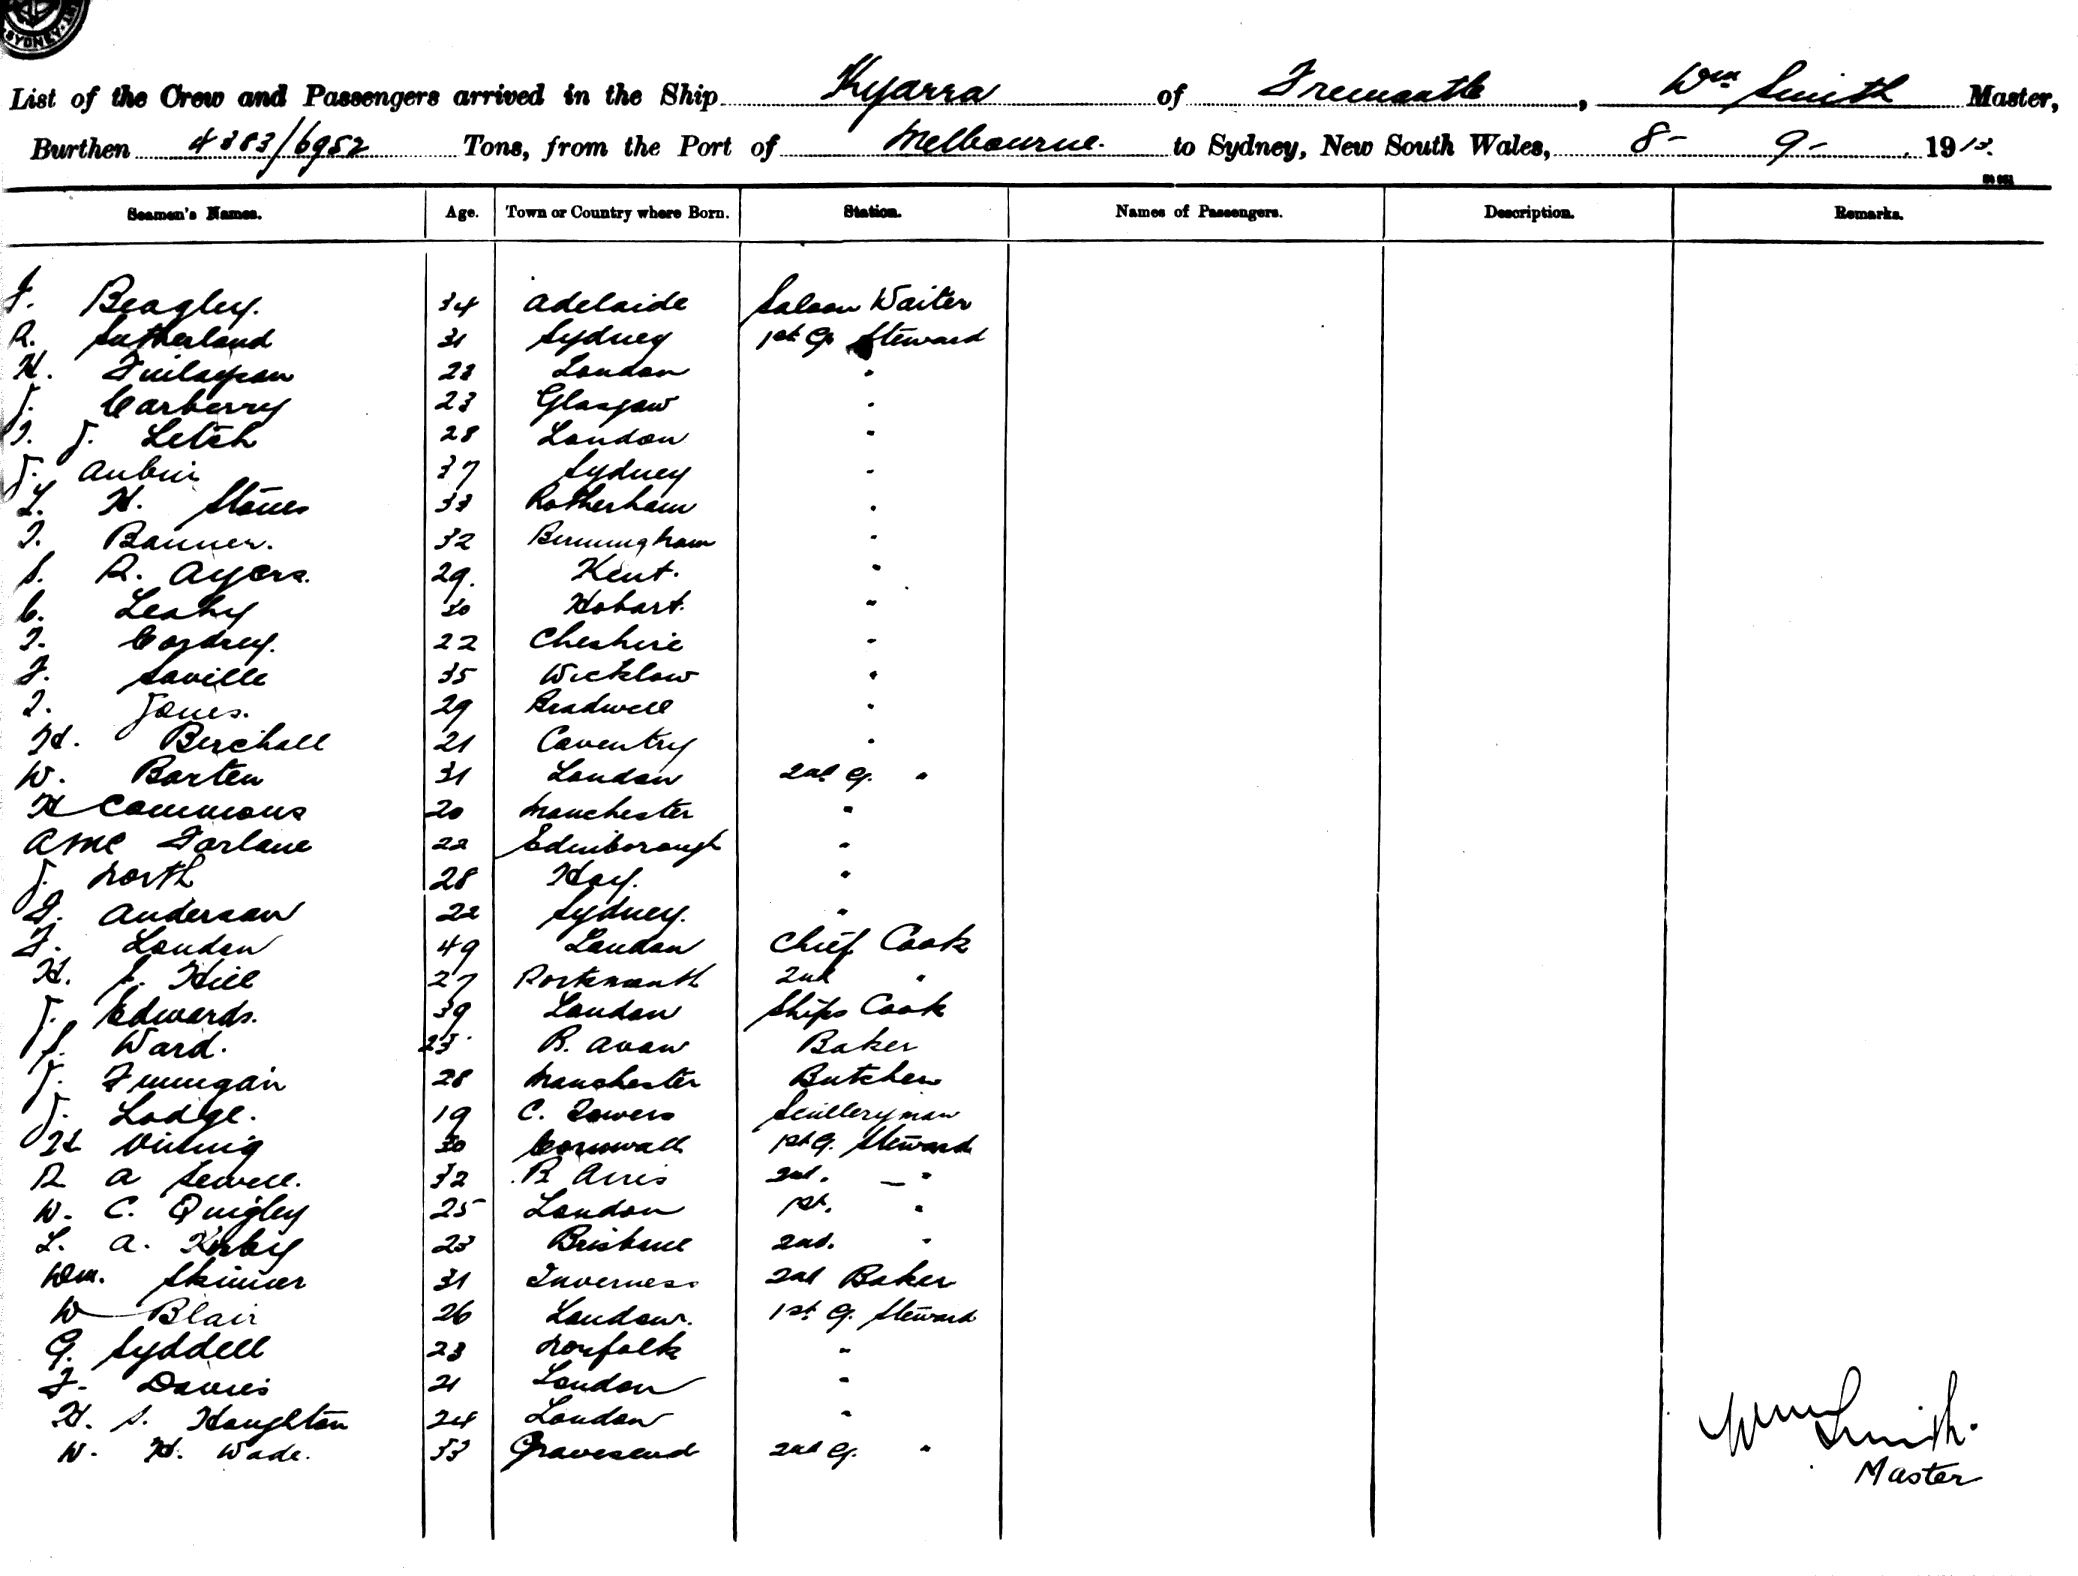 SYDNEY
List of the Crew and Passengers arrived in the Ship Kyarra of Fremantle, Wm Smith Master,
Burthen 4383/6952 Tons, from the Port of Melbourne. to Sydney, New South Wales, 8- 9- 1913.
Seamen's Names. Age. Town or Country where Born. Station. Names of Passengers. Description. Remarks.
F. Beagley. 34 Adelaide Saloon Waiter
R. Sutherland 31 Sydney 1st G. Steward
H. Finlayson London "
J. Carberry 23 Glasgow "
T. J. Letch 28 London "
J. Aubin 37 Sydney -
L. H. Stones 33 Rotherham "
T. Banner. 32 Birmingham "
S. R. Ayers. 29. Kent. "
C. Leahy 30 Hobart. "
T. Cordrey. 22 Cheshire -
F. Saville 35 Wicklow "
T. Jones. 29 Bradwell "
H. Birchall 21 Coventry "
W. Barten 31 London 2nd G. "
H Commons 20 Manchester "
A Mc Farlane 22 Edinborough "
J. North 28 Hay. "
G. Anderson 22 Sydney. "
F. London 49 London Chief Cook
H. J. Hill 27 Portsmouth 2nd "
J. Edwards. 39 London Ships Cook
S. Ward. 23 R. Avon Baker
J. Finnigan 28 Manchester Butcher
J. Lodge. 19 C. Towers Sculleryman
H Vining 30 Cornwall 1st G. Steward
R A Sewell. 32 B Aires 2nd. - "
W. C. Quigley 25 London 1st. "
L. A. Kirby 23 Brisbane 2nd. "
Wm. Skinner 31 Inverness 2nd Baker
W Blair 26 London. 1st G. Steward
G. Syddell 23 Norfolk "
F. Davies 21 London "
H. S. Houghton 24 London "
W. H. Wade. 33 Gravesend 2nd G. "
Wm Smith.
Master